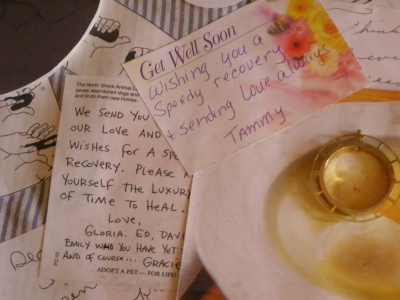 Get Well Soon
Wishing you a
Speedy recovery
& sending love always
Tammy
The North Shore Animal
saves abandoned dogs and
and finds them new homes.
We Send You
our Love And
Wishes for A
Recovery. Please
Yourself the Luxury
of Time to Heal.
Love,
Gloria. Ed,
Emily You Have Yet
And of Course...
ADOPT A PET — FOR LIFE